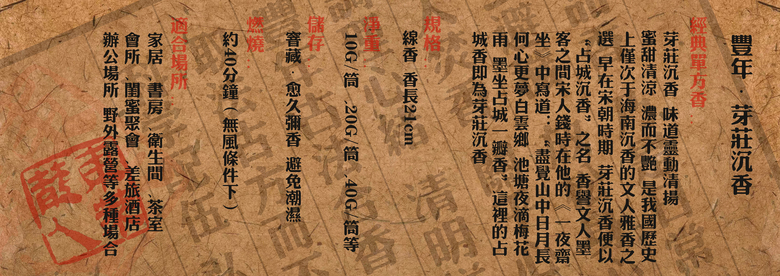 豐年·芽莊沉香
經典單方香
芽莊沉香 味道靈動清揚
蜜甜清涼 濃而不艷 是我國歷史
上僅次于海南沉香的文人雅香之
選 早在宋朝時期 芽莊沉香便以
“占城沉香”之名 香譽文人墨
客之間宋人錢時在他的《一夜齋
坐》中寫道：“盡覺山中日月長
何心更夢白雲鄉 池塘夜滴梅花
雨 墨坐占城一瓣香” 這裡的占
城香即為芽莊沉香
規格
線香 香長21cm
淨重
10G/筒、20G/筒、40G/筒等
儲存
窖藏·愈久彌香 避免潮濕
燃燒
約40分鐘（無風條件下）
適合場所
家居、書房、衛生間、茶室
會所、閨蜜聚會、差旅酒店
辦公場所 野外露營等多種場合